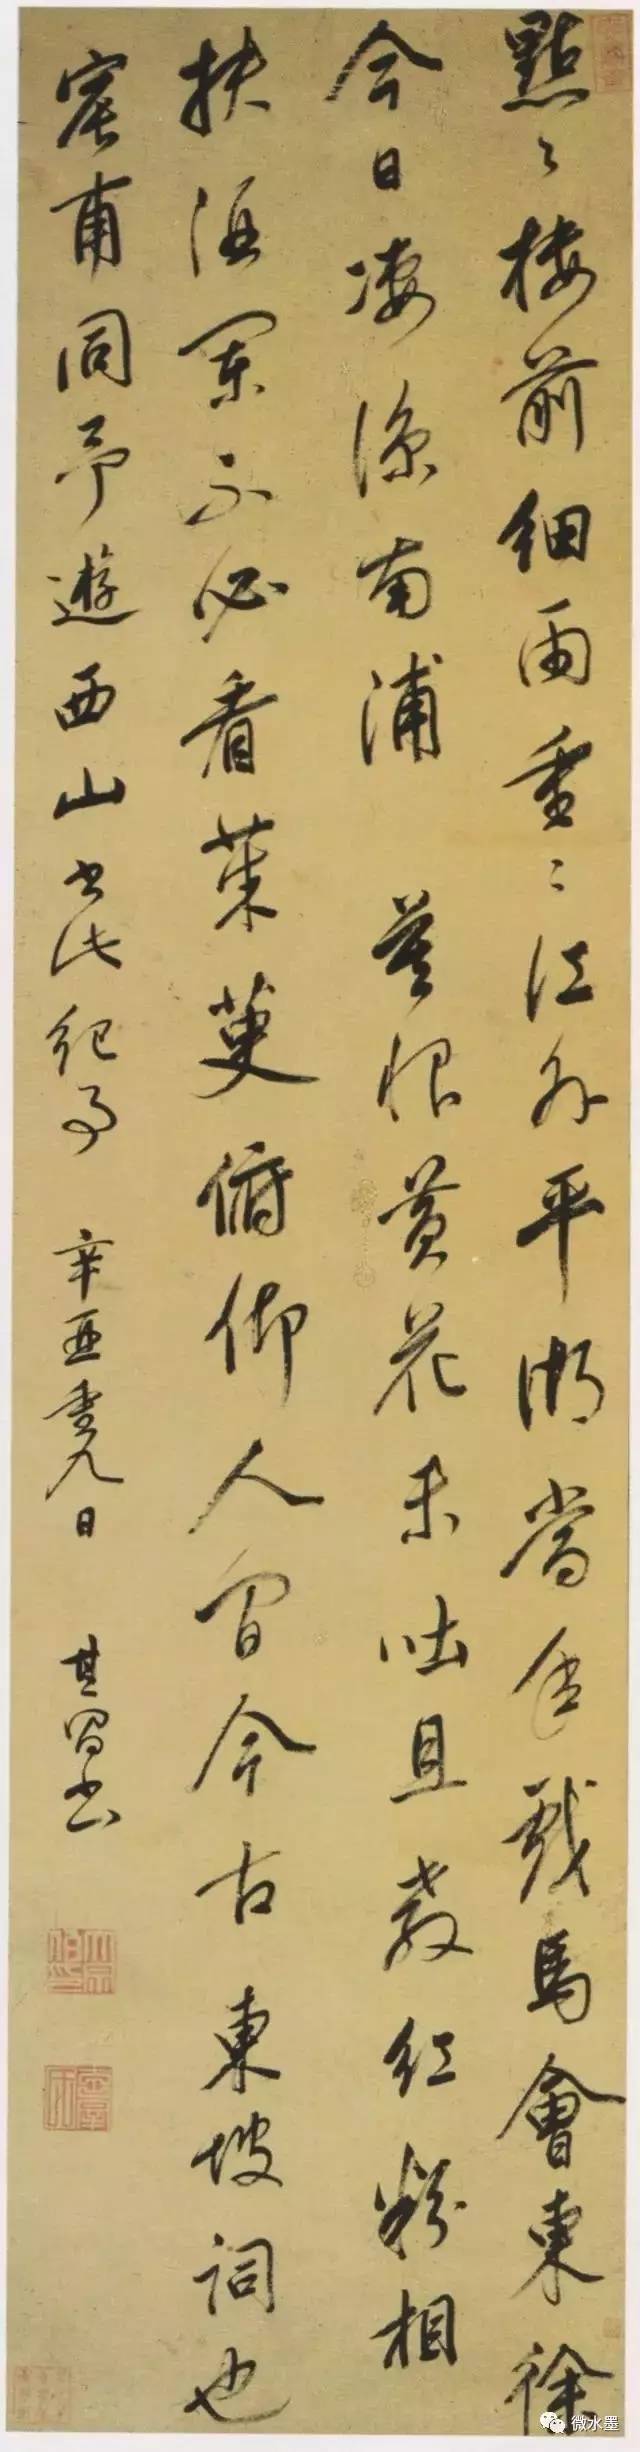 點〻樓前細雨重〻江外平湖當年戲馬會東徐
今日凄涼南浦 莫恨黃花未吐且教紅粉相
扶酒闌不必看茱萸俯仰人間今古 東坡詞也
甫同予遊西山書此紀事 辛酉重九日 其昌書
微水墨